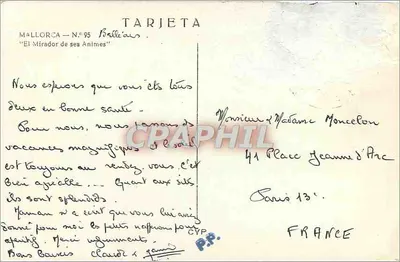 TARJETA
MALLORCA — N.º 95 Baléares
"El Mirador de ses Animes"
Nous espérons que vous êtes tous
deux en bonne santé.
Pour nous, nous passons des
vacances magnifiques et le soleil
est toujours au rendez vous. c'est
bien agréable... Quant aux sites
ils sont splendides.
Maman m'a écrit que vous lui aviez
donné pour moi les petits napperons pour
apéritif. Merci infiniment.
Bons baisers Claude &
Monsieur & Madame Moncelon
41 Place Jeanne d'Arc
Paris 13
FRANCE
CYP
P.P.
CPAPHIL